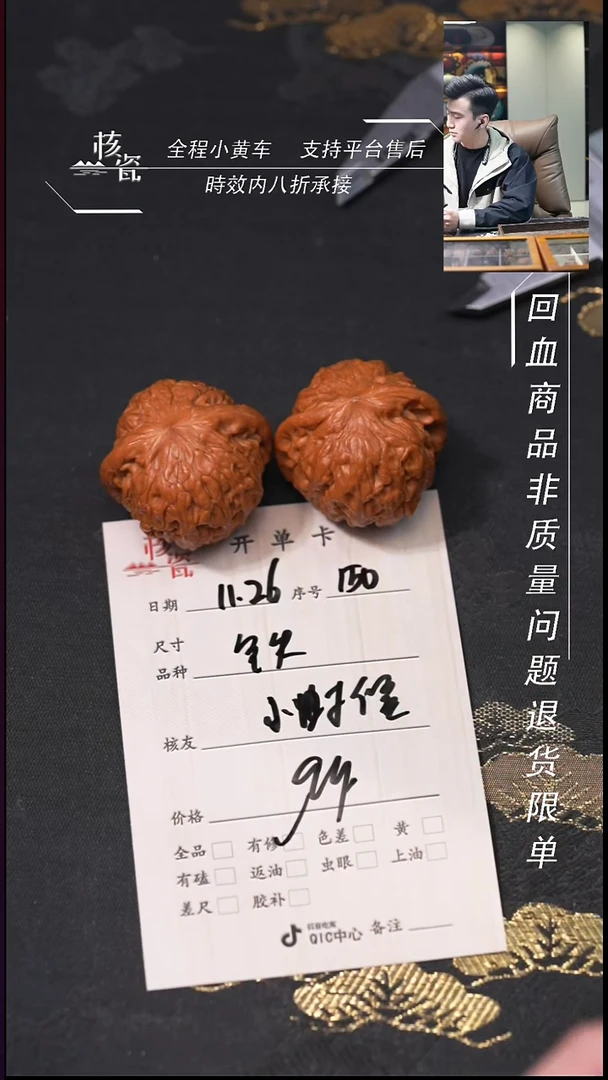 核瓷
全程小黄车 支持平台售后
時效内八折承接
回血商品非质量问题退货限单
核瓷 开单卡
日期 11.26 序号 150
尺寸
品种
核友
价格
全品 有修 色差 黄
有磕 返油 虫眼 上油
差尺 胶补
QIC中心 备注